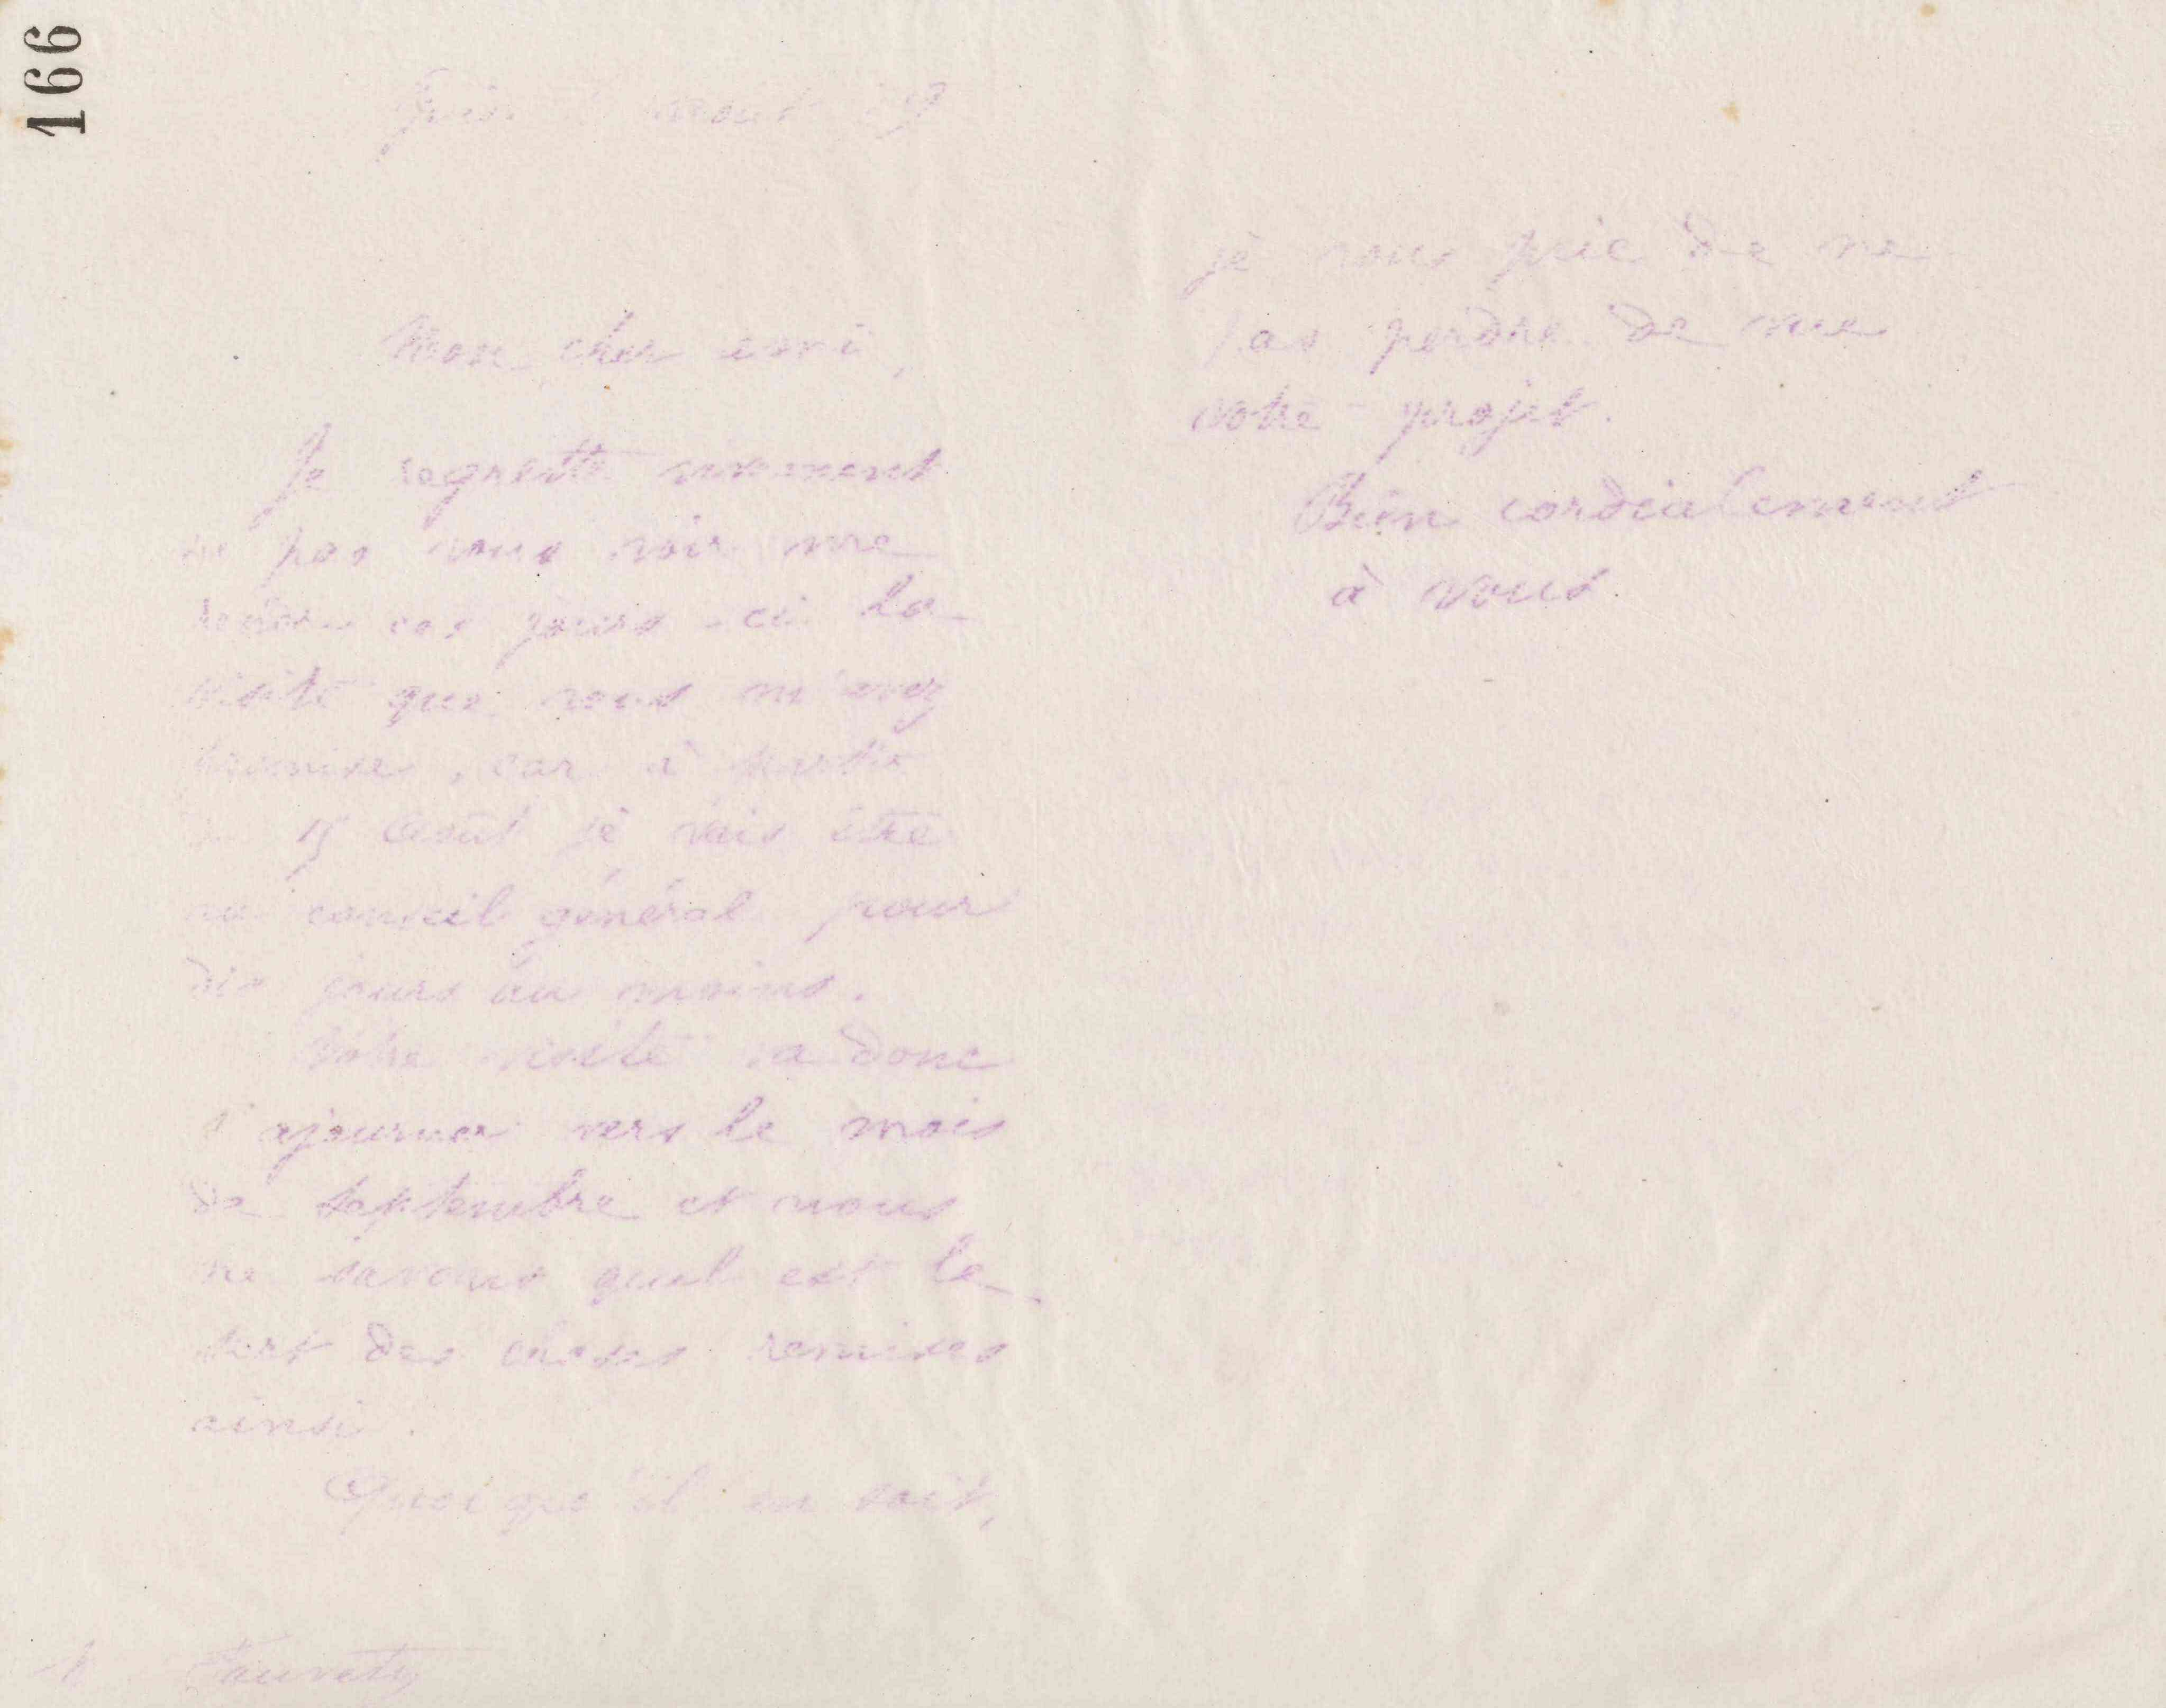 166
Mon cher ami,
Je regrette vivement
ne pas vous voir me
rendre ces jours-ci la
visite que vous m'avez
promise, car à partir
15 Août je vais être
au conseil général pour
dix jours au moins.
Votre visite va donc
s'ajourner vers le mois
de septembre et nous
ne savons quel est le
sort des choses remises
ainsi.
Quoi qu'il en soit,
M Fauvety
je vous prie de ne
pas perdre de vue
votre projet.
Bien cordialement
à vous